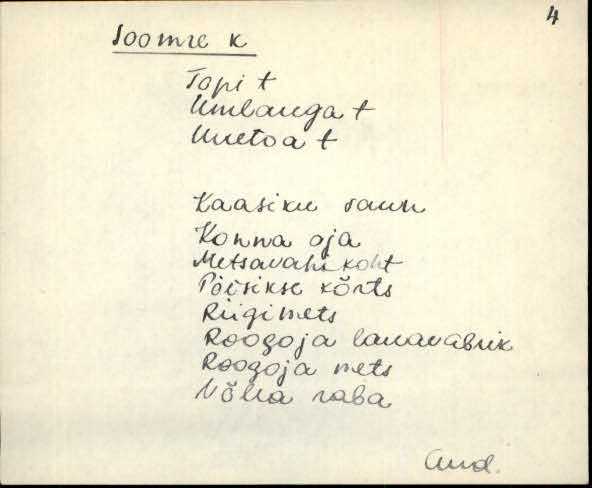 4
Soomre k
Topi t
Umlauga t
Uuetoa t
Kaasiku saun
Konna oja
Metsavahi koht
Põõsikse kõrts
Riigimets
Roogoja lauavabrik
Roogoja mets
Võlla raba
Aud.